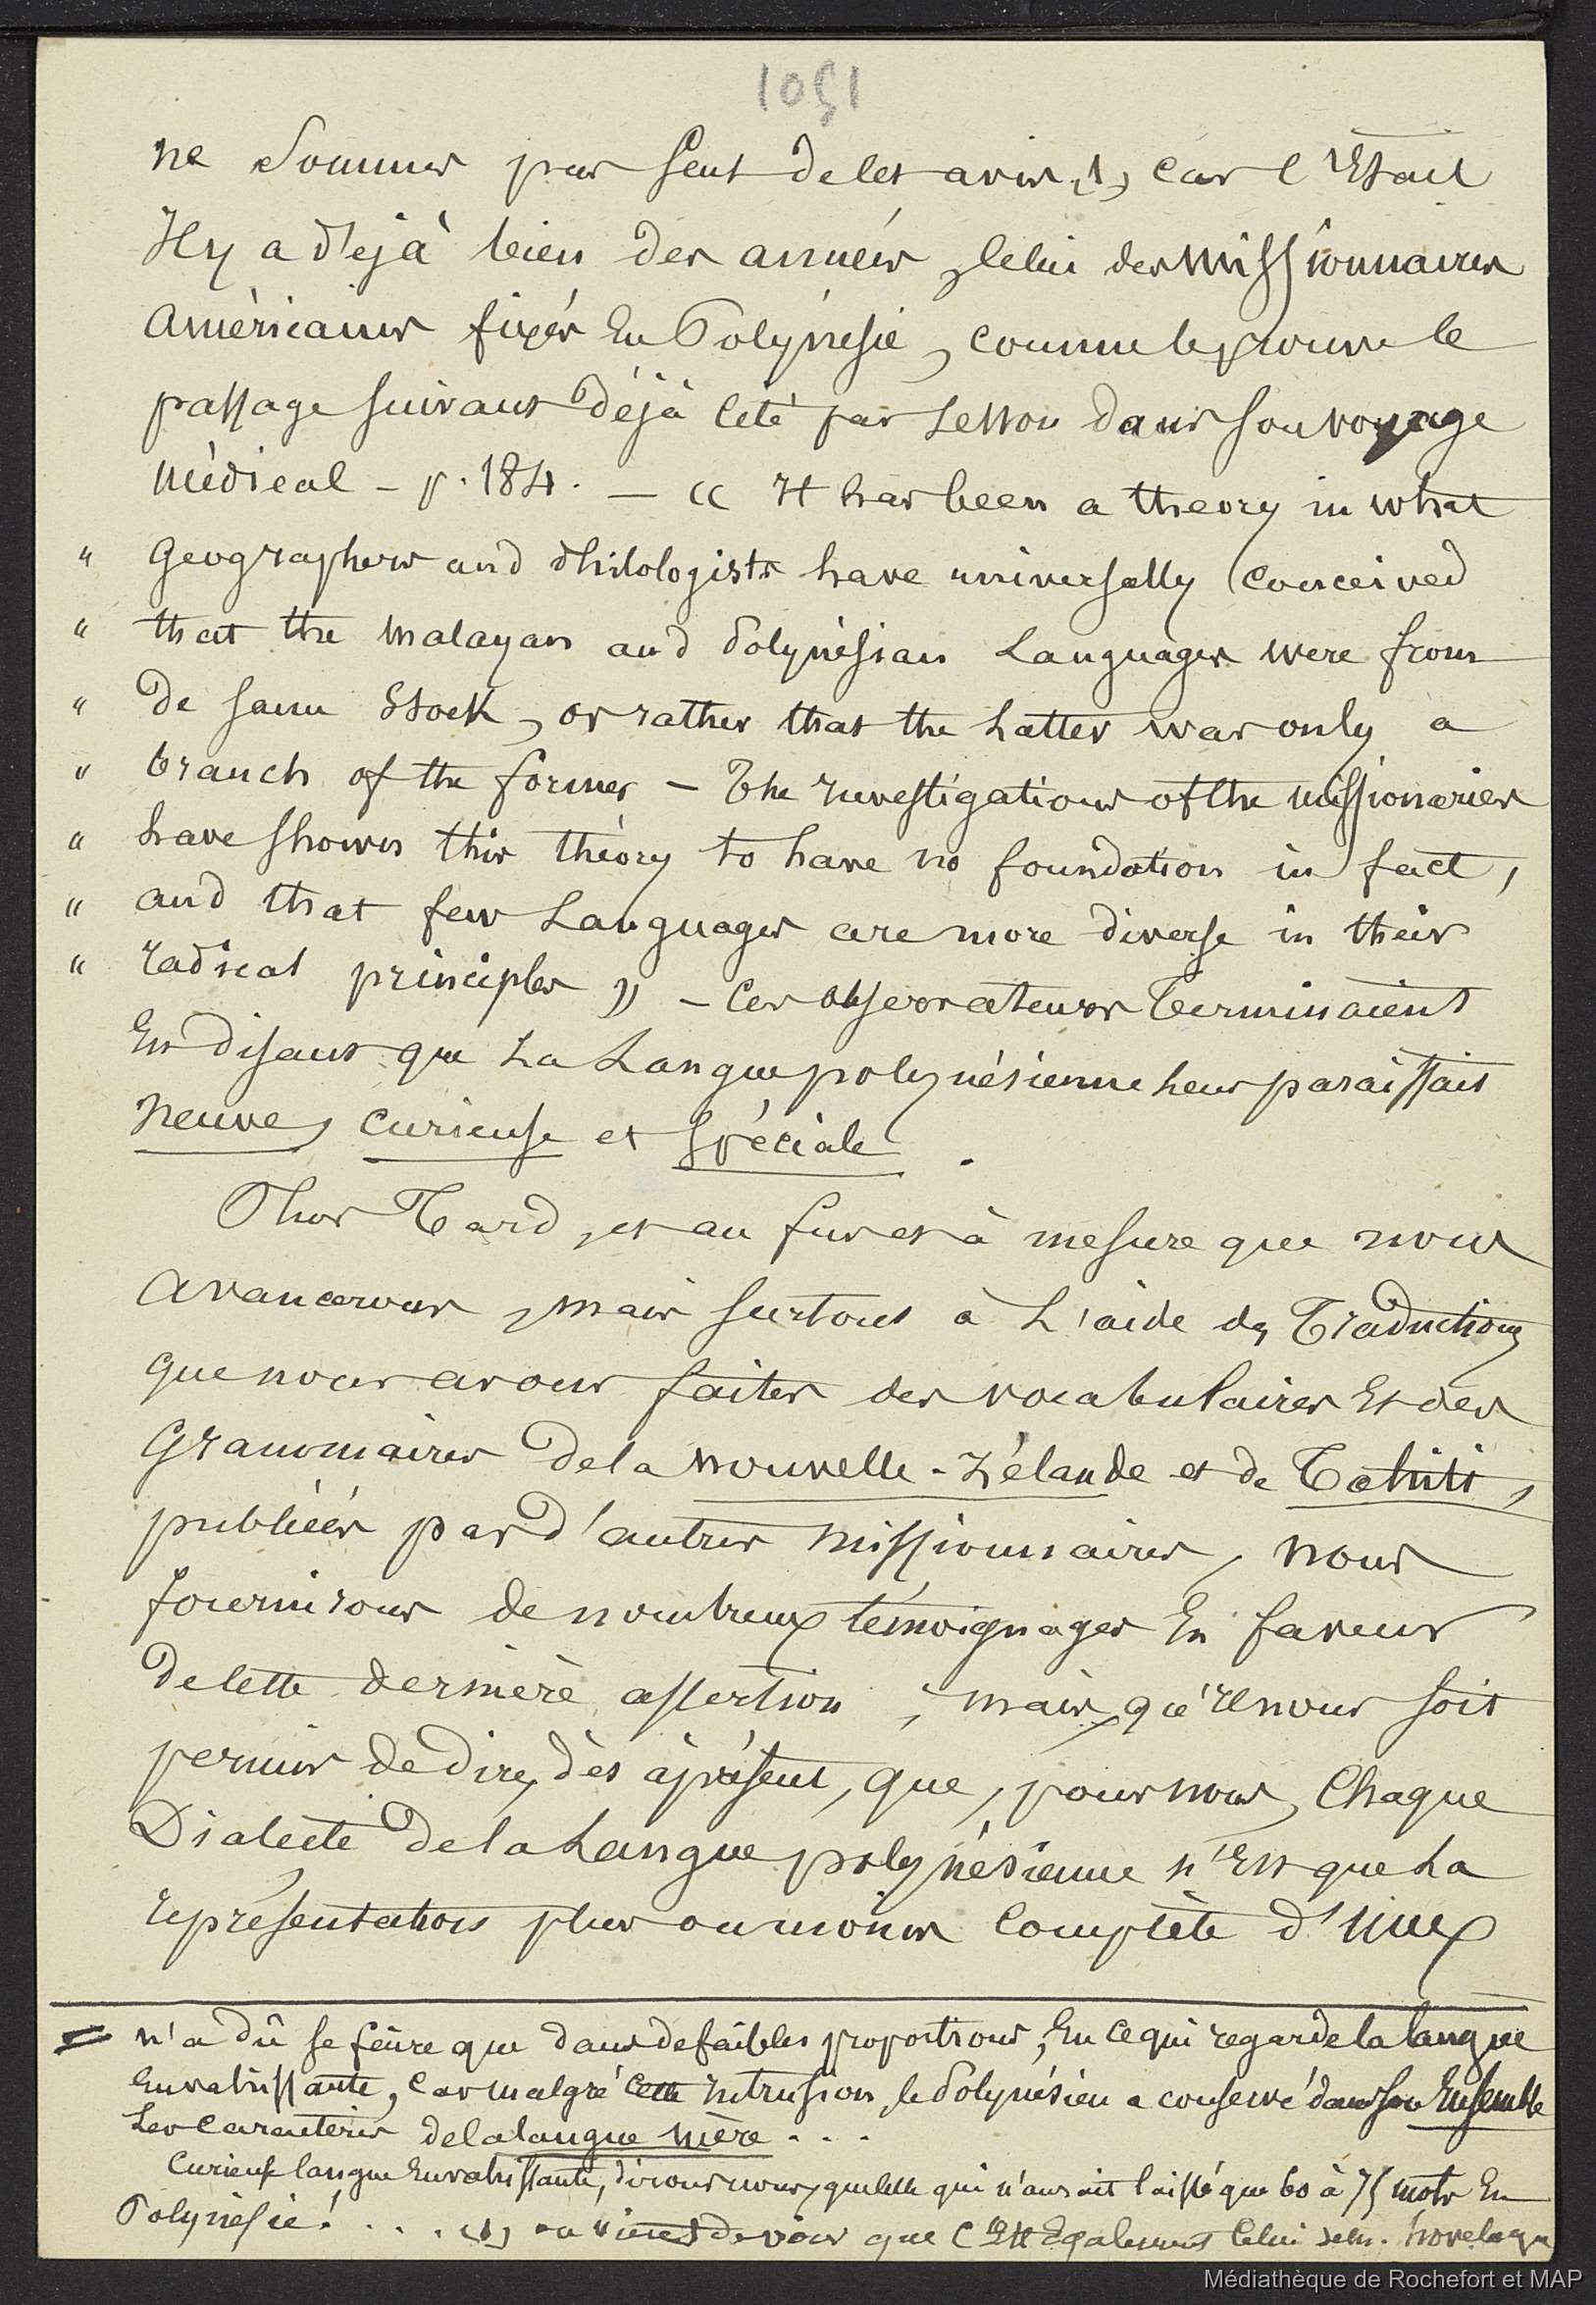 1051
ne sommes pas seul de cet avis (1), car c'Etait
Il y a dejà bien des années, celui des missionnaires
américains fixés En Polynésie, comme le prouve le
passage suivant déjà cité par Lesson dans son voyage
médical - p. 184. — « It has been a theory in what
" geographers and philologists have universally conceived
" that the malayan and Polynésian Languages were from
" de same Stock, or rather that the Latter was only a
" branch of the former - The Investigations of the missionaries
" have shown this théory to have no foundation in fact,
" and that few Languages are more diverse in their
" radical principles » - Ces observateurs Terminaient
En disant que La Langue polynésienne leur paraissait
neuve, curieuse et spéciale.
Plus Tard, et au fur et à mesure que nous
avancerons, mais surtout à L'aide des Traductions
que nous avons faites des vocabulaires Et des
Grammaires de la nouvelle-Zélande et de Tahiti,
publiées par d'autres missionnaires, nous
fournirons de nombreux témoignages En faveur
de cette dernière assertion ; mais qu'Il nous soit
permis de dire, dès àprésent, que, pour nous, Chaque
Dialecte de la Langue polynésienne n'Est que La
représentation plus ou moins complète d'une
= n'a dû se faire que dans de faibles proportions, En ce qui regarde la langue
Envahissante, car malgré cette Intrusion le Polynésien a conservé dans son Ensemble
Les caractères de la langue mère . . .
Curieuse langue Envahissante, dirons nous, que celle qui n'aurait laissé que 60 à 75 mots En
Polynésie ! . . . (1) on vient de voir que C'Est Egalement Celui de m. hovelacque